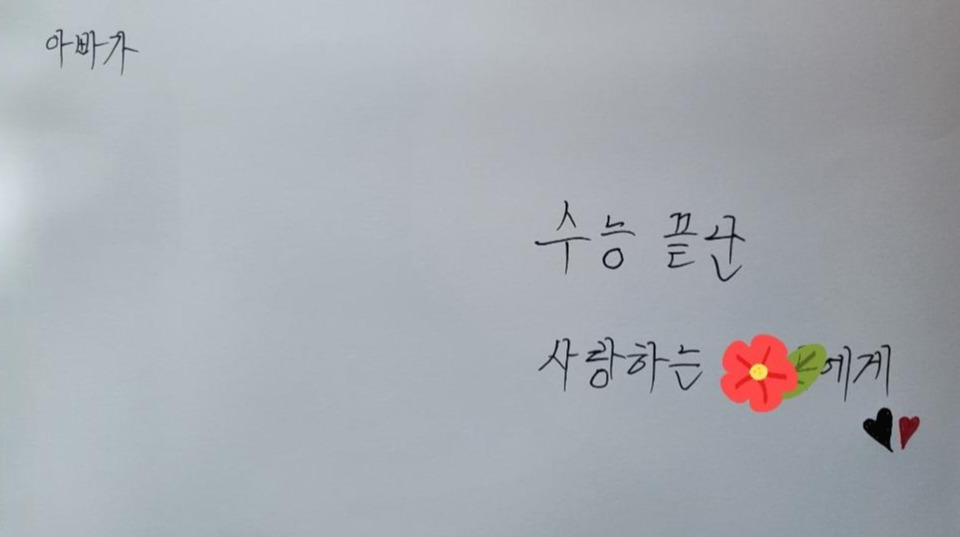 아빠가
수능 끝난
사랑하는 에게